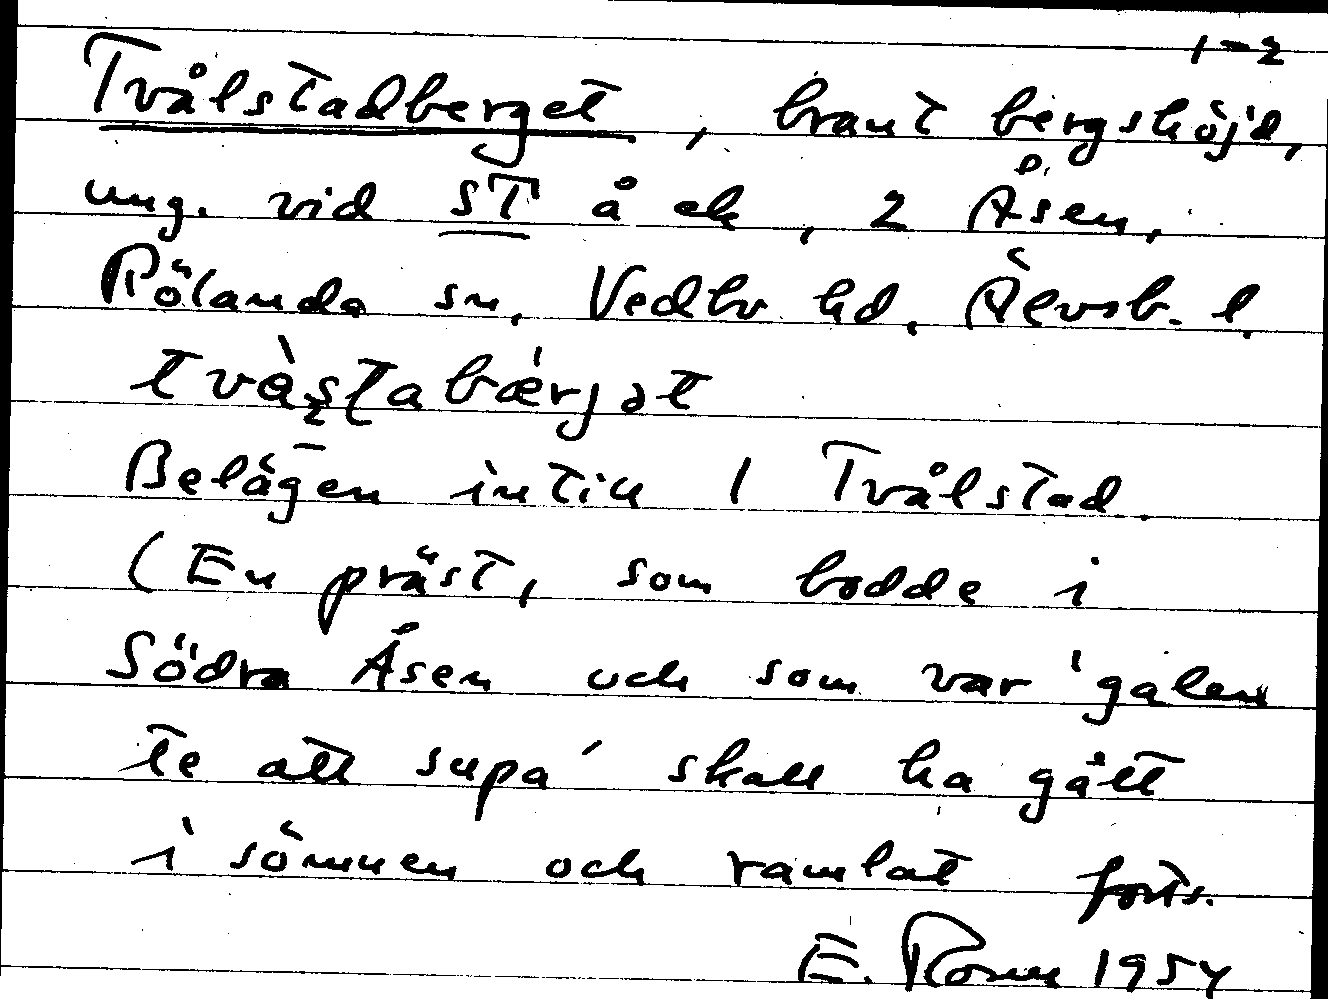 1-2
Tvålstadberget, brant bergshöjd,
ung. vid ST å ek, 2 Åsen,
Rölanda sn, Vedbo hd, Älvsb. l.
Belägen intill 1 Tvålstad.
(En präst, som bodde i
Södra Åsen och som var 'galen
te att supa' skall ha gått
i sömnen och ramlat forts.
E. 1954